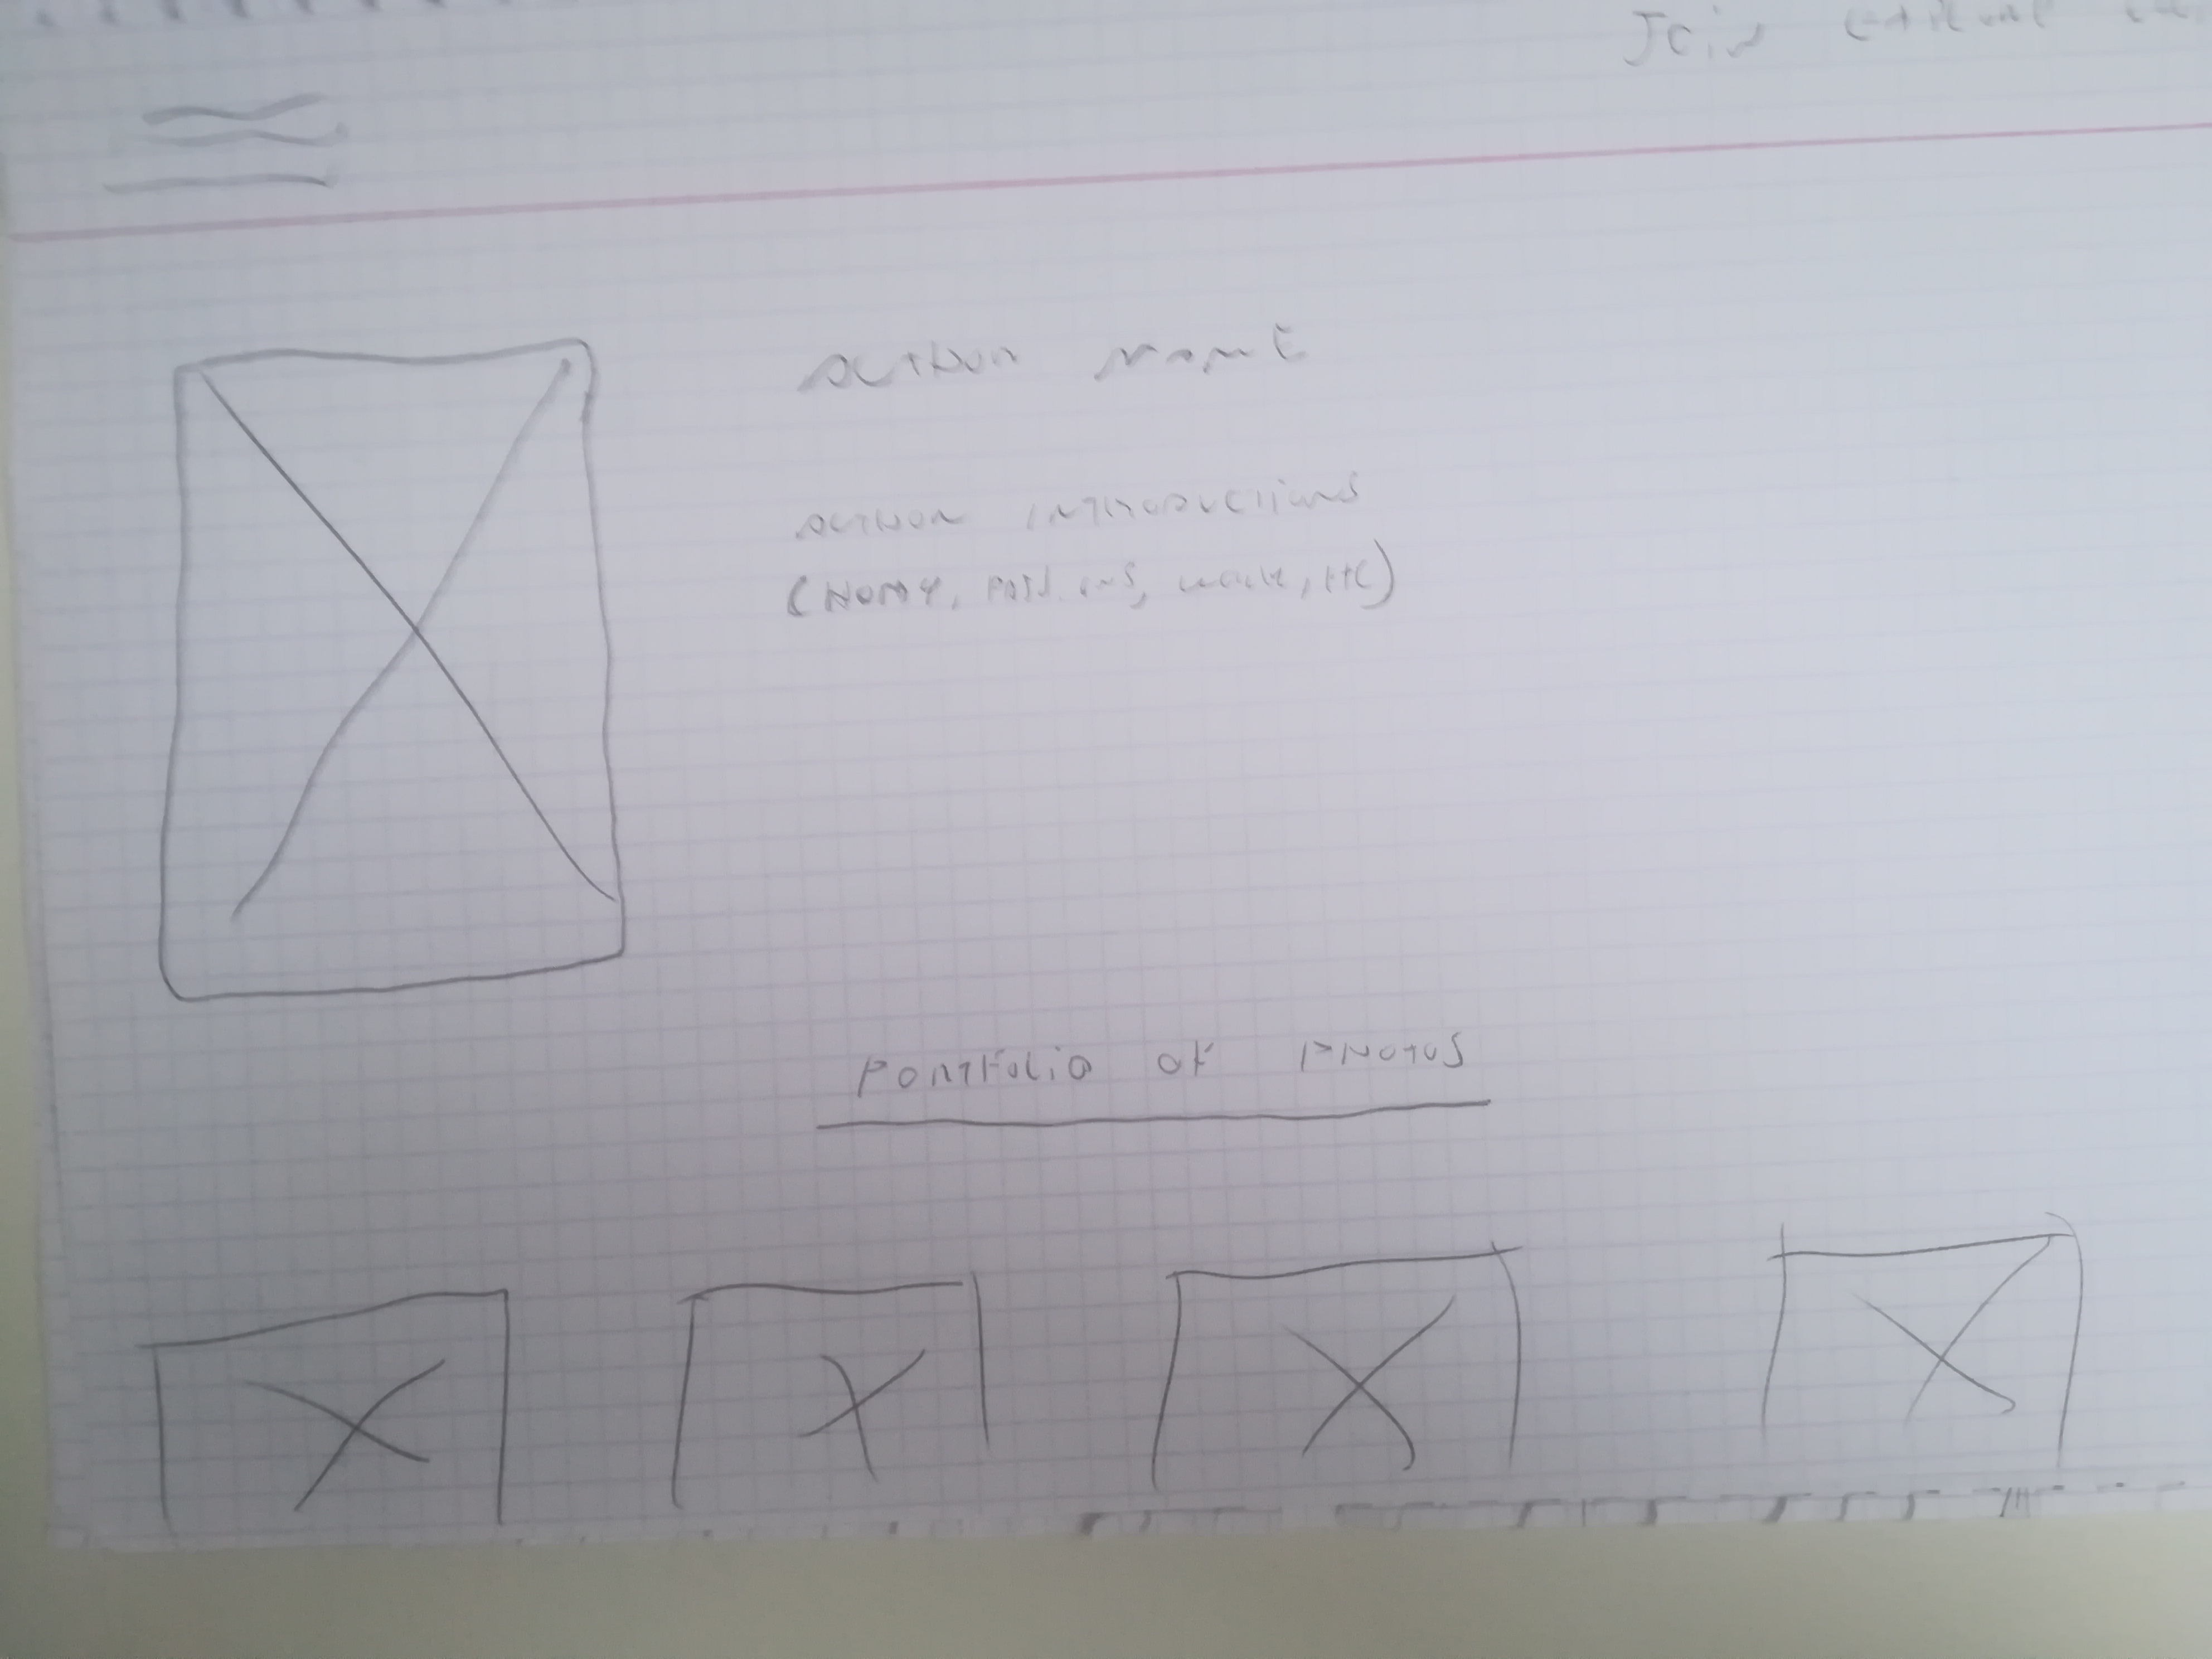 Join
author name
author introductions
(Home, passions, work, etc)
Portfolio of Photos